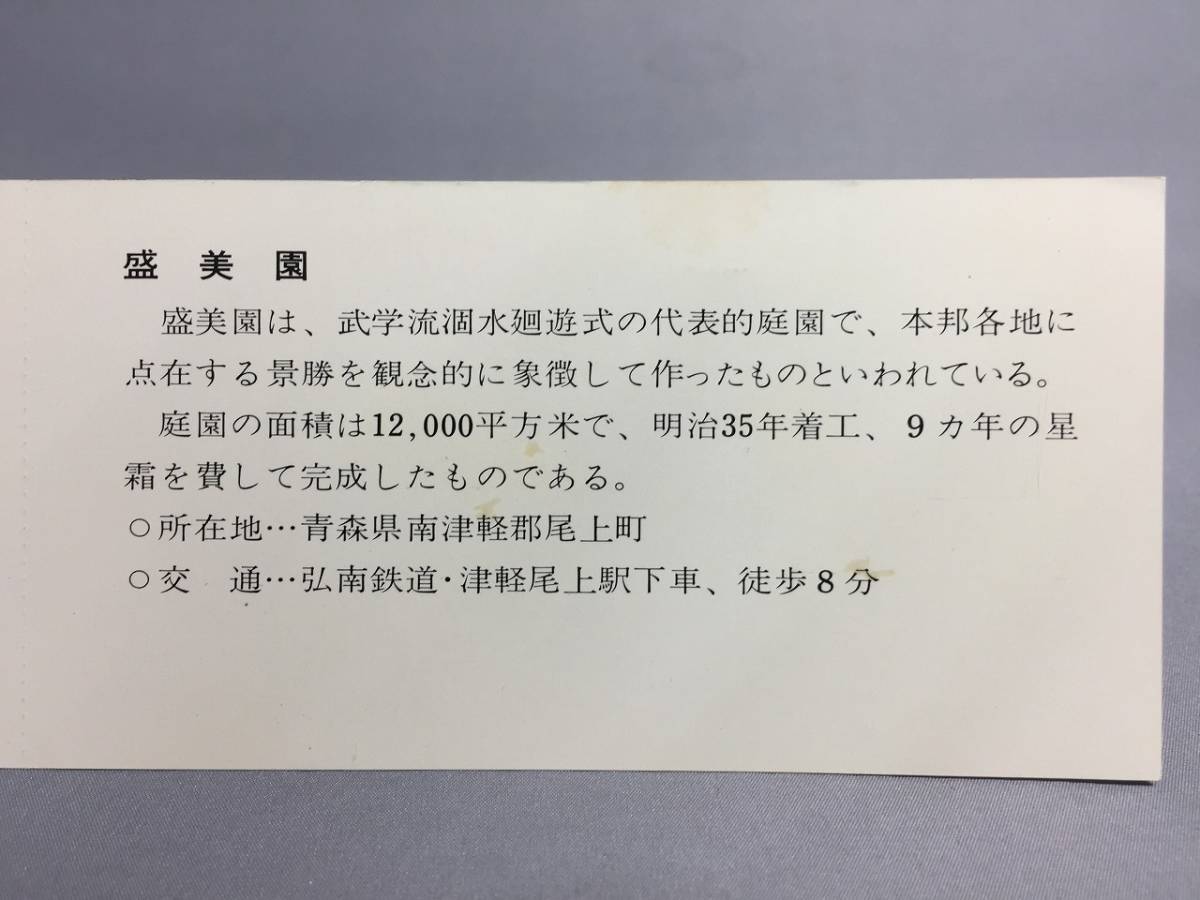 盛 美 園
　盛美園は、武学流涸水廻遊式の代表的庭園で、本邦各地に
点在する景勝を観念的に象徴して作ったものといわれている。
　庭園の面積は12,000平方米で、明治35年着工、9カ年の星
霜を費して完成したものである。
○所在地…青森県南津軽郡尾上町
○交　通…弘南鉄道・津軽尾上駅下車、徒歩8分